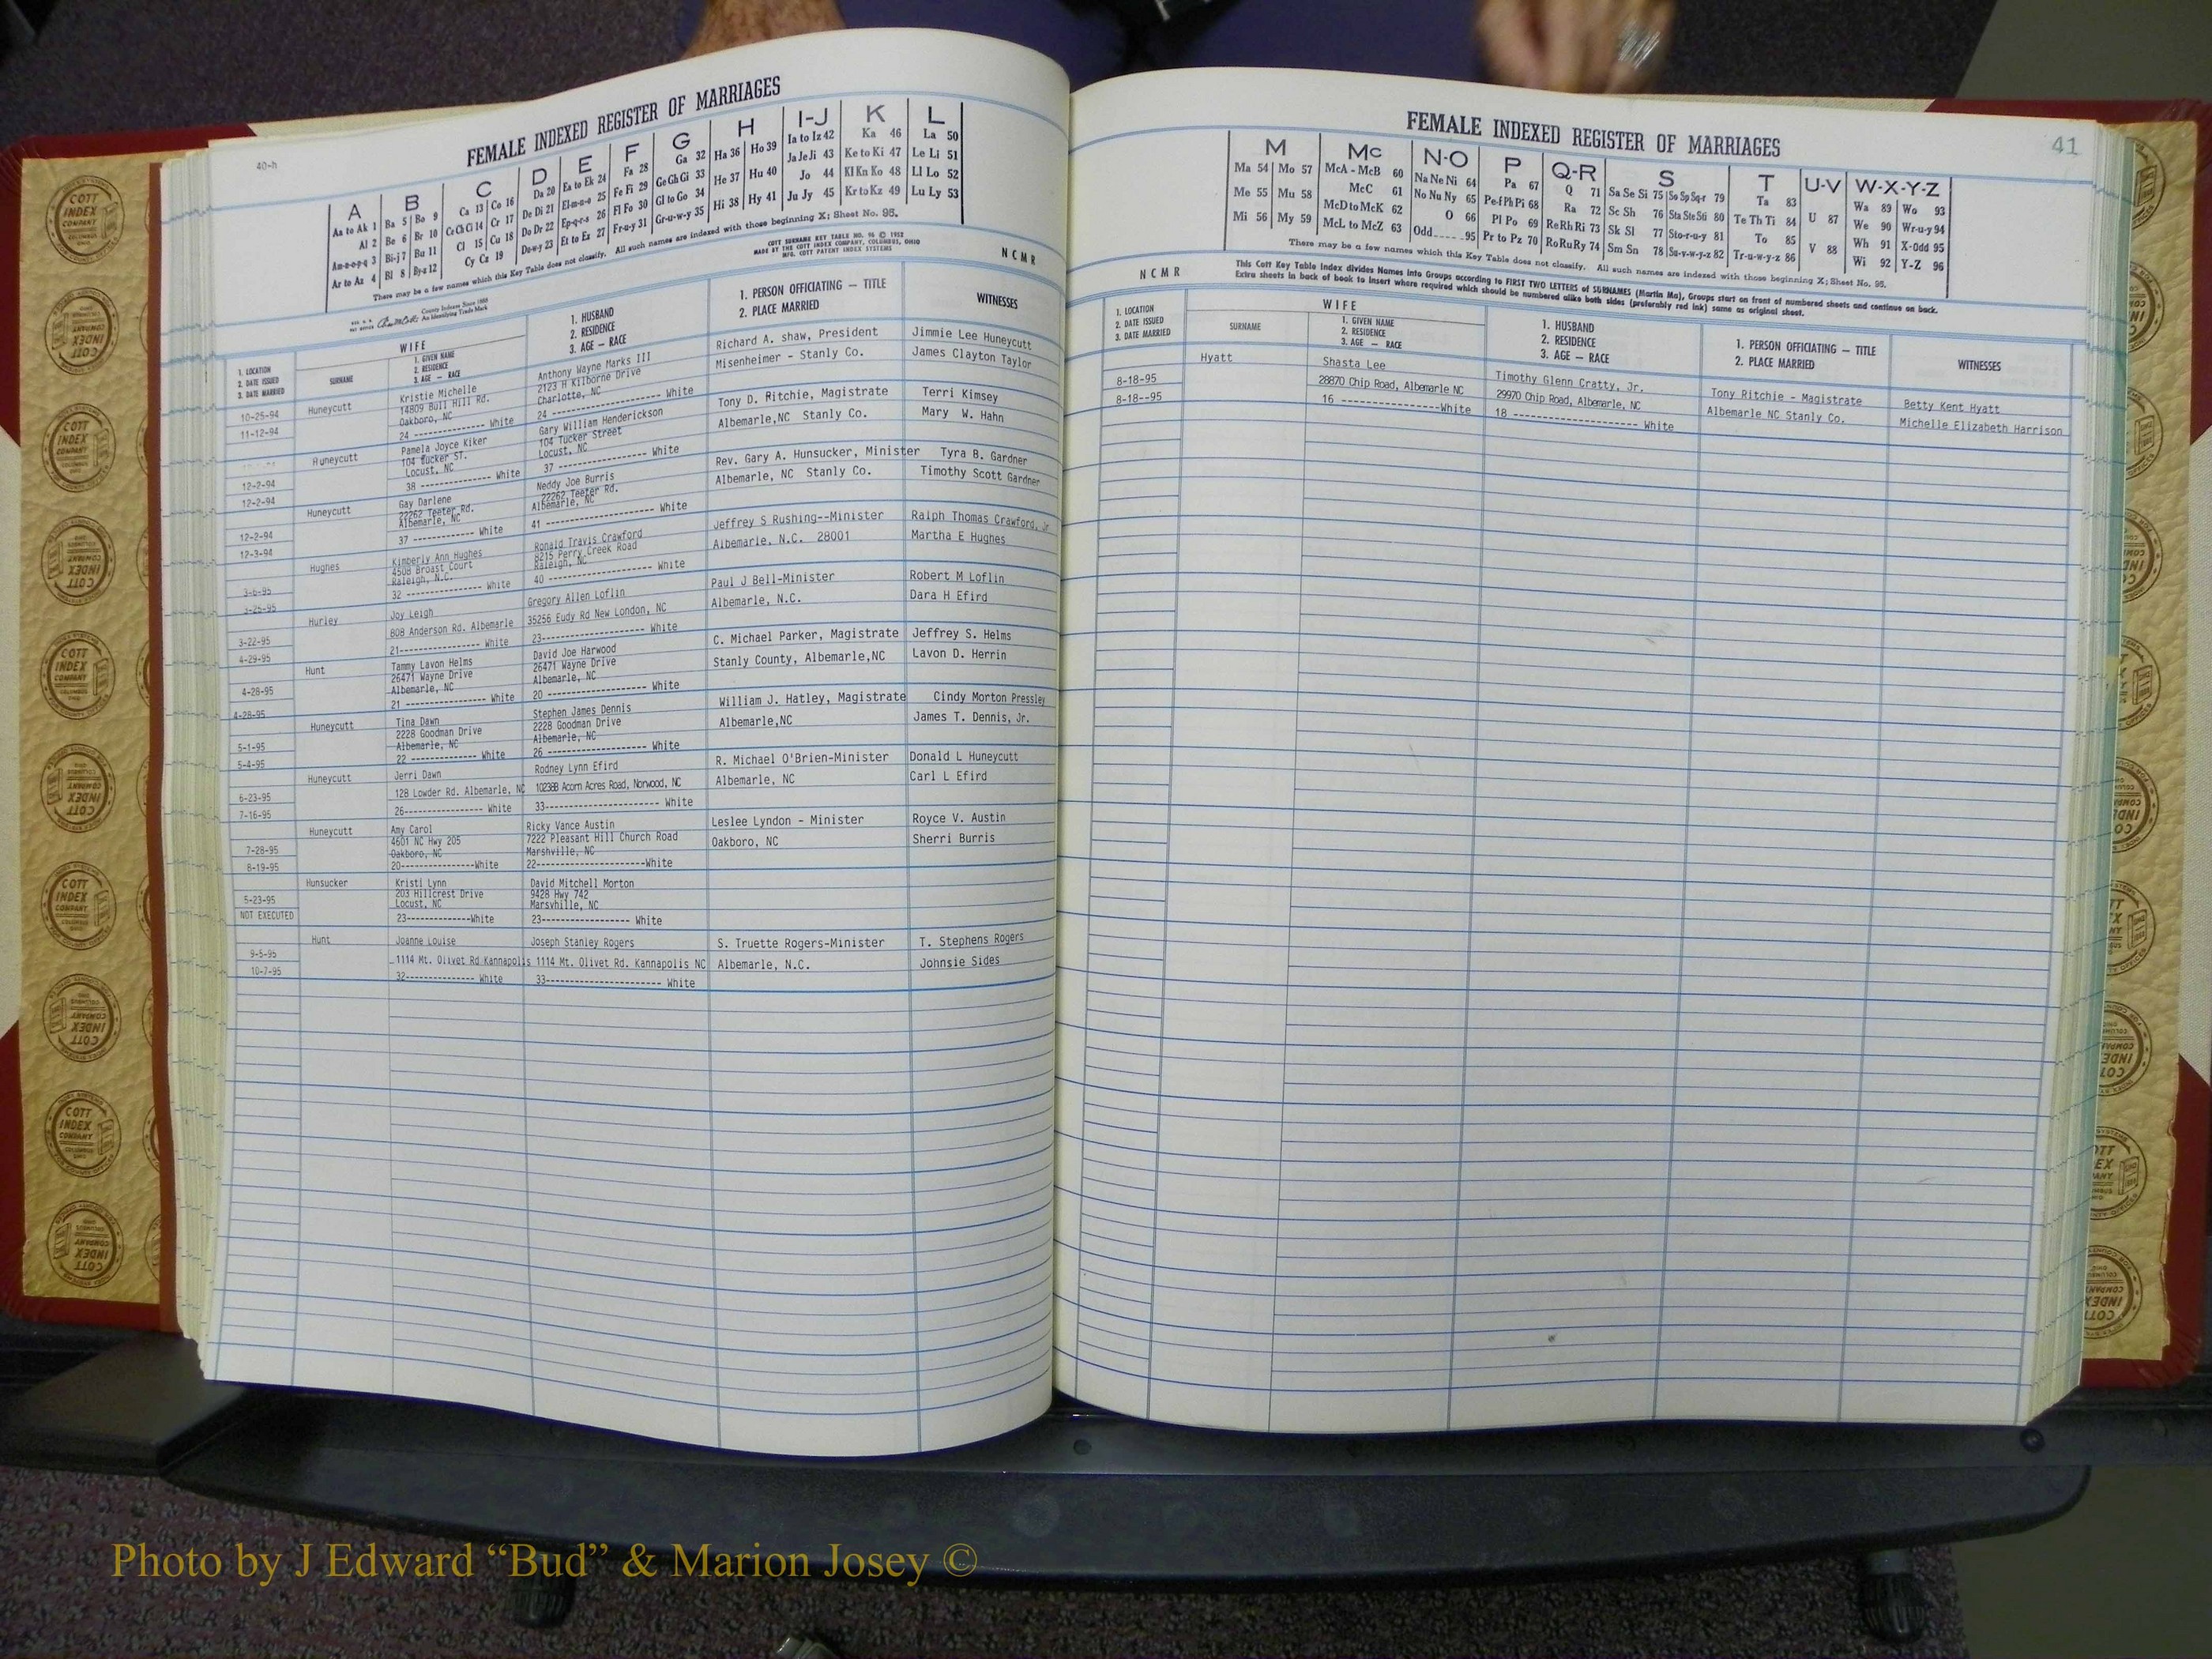 40-h
FEMALE INDEXED REGISTER OF MARRIAGES
A B C D E F G H I-J K L
Aa to Ak 1 Ba 5 Bo 9 Ca 13 Co 16 Da 20 Ea to Ek 24 Fa 28 Ga 32 Ha 36 Ho 39 Ia to Iz 42 Ka 46 La 50
Al 2 Be 6 Br 10 Ce Ch Ci 14 Cr 17 De Di 21 El-m-n-o 25 Fe Fi 29 Ge Gh Gi 33 He 37 Hu 40 Ja Je Ji 43 Ke to Ki 47 Le Li 51
Am-n-o-p-q 3 Bi-j 7 Bu 11 Cl 15 Cu 18 Do Dr 22 Ep-q-r-s 26 Fl Fo 30 Gl to Go 34 Hi 38 Hy 41 Jo 44 Kl Kn Ko 48 Ll Lo 52
Ar to Az 4 Bl 8 By-z 12 Cy Cz 19 Du-w-y 23 Et to Ez 27 Fr-u-y 31 Gr-u-w-y 35 Ju Jy 45 Kr to Kz 49 Lu Ly 53
There may be a few names which this Key Table does not classify. All such names are indexed with those beginning X; Sheet No. 95.
COTT SURNAME KEY TABLE NO. 96 © 1952
MADE BY THE COTT INDEX COMPANY, COLUMBUS, OHIO
MFG. COTT PATENT INDEX SYSTEMS
NCMR
County Indexes Since 1888
An Identifying Trade Mark
1. LOCATION
2. DATE ISSUED
3. DATE MARRIED
WIFE
SURNAME
1. GIVEN NAME
2. RESIDENCE
3. AGE — RACE
1. HUSBAND
2. RESIDENCE
3. AGE — RACE
1. PERSON OFFICIATING — TITLE
2. PLACE MARRIED
WITNESSES
10-25-94
11-12-94
Huneycutt
Kristie Michelle
14809 Bull Hill Rd.
Oakboro, NC
24 -------------- White
Anthony Wayne Marks III
2123 H Kilborne Drive
Charlotte, NC
24 -------------------- White
Richard A. shaw, President
Misenheimer - Stanly Co.
Jimmie Lee Huneycutt
James Clayton Taylor
12-2-94
Huneycutt
Pamela Joyce Kiker
104 Tucker ST.
Locust, NC
38 -------------- White
Gary William Henderickson
104 Tucker Street
Locust, NC
37 -------------------- White
Tony D. Ritchie, Magistrate
Albemarle,NC Stanly Co.
Terri Kimsey
Mary W. Hahn
12-2-94
Huneycutt
Gay Darlene
22262 Teeter Rd.
Albemarle, NC
37 -------------- White
Neddy Joe Burris
22262 Teeter Rd.
Albemarle, NC
41 -------------------- White
Rev. Gary A. Hunsucker, Minister
Albemarle, NC Stanly Co.
Tyra B. Gardner
Timothy Scott Gardner
12-2-94
12-3-94
Hughes
Kimberly Ann Hughes
4508 Broast Court
Raleigh, N.C.
32 -------------- White
Ronald Travis Crawford
8215 Perry Creek Road
Raleigh, NC
40 -------------------- White
Jeffrey S Rushing--Minister
Albemarle, N.C. 28001
Ralph Thomas Crawford, Jr
Martha E Hughes
3-6-95
3-25-95
Hurley
Joy Leigh
808 Anderson Rd. Albemarle
21-------------- White
Gregory Allen Loflin
35256 Eudy Rd New London, NC
23-------------------- White
Paul J Bell-Minister
Albemarle, N.C.
Robert M Loflin
Dara H Efird
3-22-95
4-29-95
Hunt
Tammy Lavon Helms
26471 Wayne Drive
Albemarle, NC
21 -------------- White
David Joe Harwood
26471 Wayne Drive
Albemarle, NC
20 -------------------- White
C. Michael Parker, Magistrate
Stanly County, Albemarle,NC
Jeffrey S. Helms
Lavon D. Herrin
4-28-95
4-28-95
Huneycutt
Tina Dawn
2228 Goodman Drive
Albemarle, NC
22 -------------- White
Stephen James Dennis
2228 Goodman Drive
Albemarle, NC
26 -------------------- White
William J. Hatley, Magistrate
Albemarle,NC
Cindy Morton Pressley
James T. Dennis, Jr.
5-1-95
5-4-95
Huneycutt
Jerri Dawn
128 Lowder Rd. Albemarle, NC
26-------------- White
Rodney Lynn Efird
10238B Acorn Acres Road, Norwood, NC
33-------------------- White
R. Michael O'Brien-Minister
Albemarle, NC
Donald L Huneycutt
Carl L Efird
6-23-95
7-16-95
Huneycutt
Amy Carol
4601 NC Hwy 205
Oakboro, NC
20--------------White
Ricky Vance Austin
7222 Pleasant Hill Church Road
Marshville, NC
22--------------------White
Leslee Lyndon - Minister
Oakboro, NC
Royce V. Austin
Sherri Burris
7-28-95
8-19-95
Hunsucker
Kristi Lynn
203 Hillcrest Drive
Locust, NC
23-------------White
David Mitchell Morton
9428 Hwy 742
Marsvhille, NC
23------------------ White
5-23-95
NOT EXECUTED
Hunt
Joanne Louise
1114 Mt. Olivet Rd Kannapolis
32-------------- White
Joseph Stanley Rogers
1114 Mt. Olivet Rd. Kannapolis NC
33-------------------- White
S. Truette Rogers-Minister
Albemarle, N.C.
T. Stephens Rogers
Johnsie Sides
9-5-95
10-7-95
FEMALE INDEXED REGISTER OF MARRIAGES
41
M Mc N-O P Q-R S T U-V W-X-Y-Z
Ma 54 Mo 57 McA - McB 60 Na Ne Ni 64 Pa 67 Q 71 Sa Se Si 75 So Sp Sq-r 79 Ta 83 U 87 Wa 89 Wo 93
Me 55 Mu 58 McC 61 No Nu Ny 65 Pe-f Ph Pi 68 Ra 72 Sc Sh 76 Sta Ste Sti 80 Te Th Ti 84 V 88 We 90 Wr-u-y 94
Mi 56 My 59 McD to McK 62 O 66 Pl Po 69 Re Rh Ri 73 Sk Sl 77 Sto-r-u-y 81 To 85 Wh 91 X-Odd 95
McL to McZ 63 Odd 95 Pr to Pz 70 Ro Ru Ry 74 Sm Sn 78 Su-v-w-y-z 82 Tr-u-w-y-z 86 Wi 92 Y-Z 96
There may be a few names which this Key Table does not classify. All such names are indexed with those beginning X; Sheet No. 95.
NCMR
This Cott Key Table Index divides Names into Groups according to FIRST TWO LETTERS of SURNAMES (Martin Ma), Groups start on front of numbered sheets and continue on back.
Extra sheets in back of book to insert where required which should be numbered alike both sides (preferably red ink) same as original sheet.
1. LOCATION
2. DATE ISSUED
3. DATE MARRIED
WIFE
SURNAME
1. GIVEN NAME
2. RESIDENCE
3. AGE — RACE
1. HUSBAND
2. RESIDENCE
3. AGE — RACE
1. PERSON OFFICIATING — TITLE
2. PLACE MARRIED
WITNESSES
8-18-95
8-18--95
Hyatt
Shasta Lee
28870 Chip Road, Albemarle NC
16 -----------------White
Timothy Glenn Cratty, Jr.
29970 Chip Road, Albemarle, NC
18 --------------------- White
Tony Ritchie - Magistrate
Albemarle NC Stanly Co.
Betty Kent Hyatt
Michelle Elizabeth Harrison
COTT
INDEX
COMPANY
Photo by J Edward “Bud” & Marion Josey ©